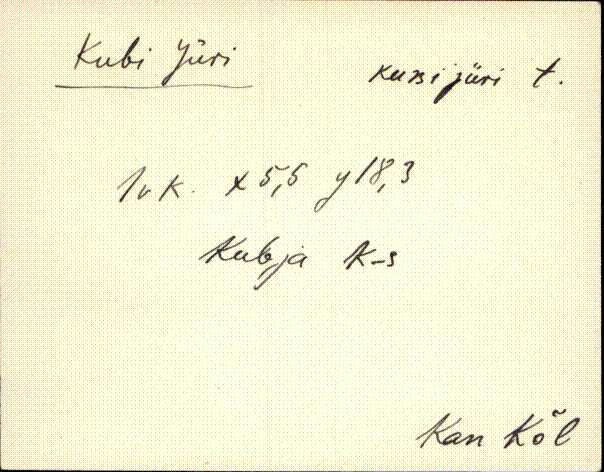 Kubi Jüri
kuʙi jüri t.
1vk. x 5,5 y 18,3
Kubja k-s
Kan Kõl